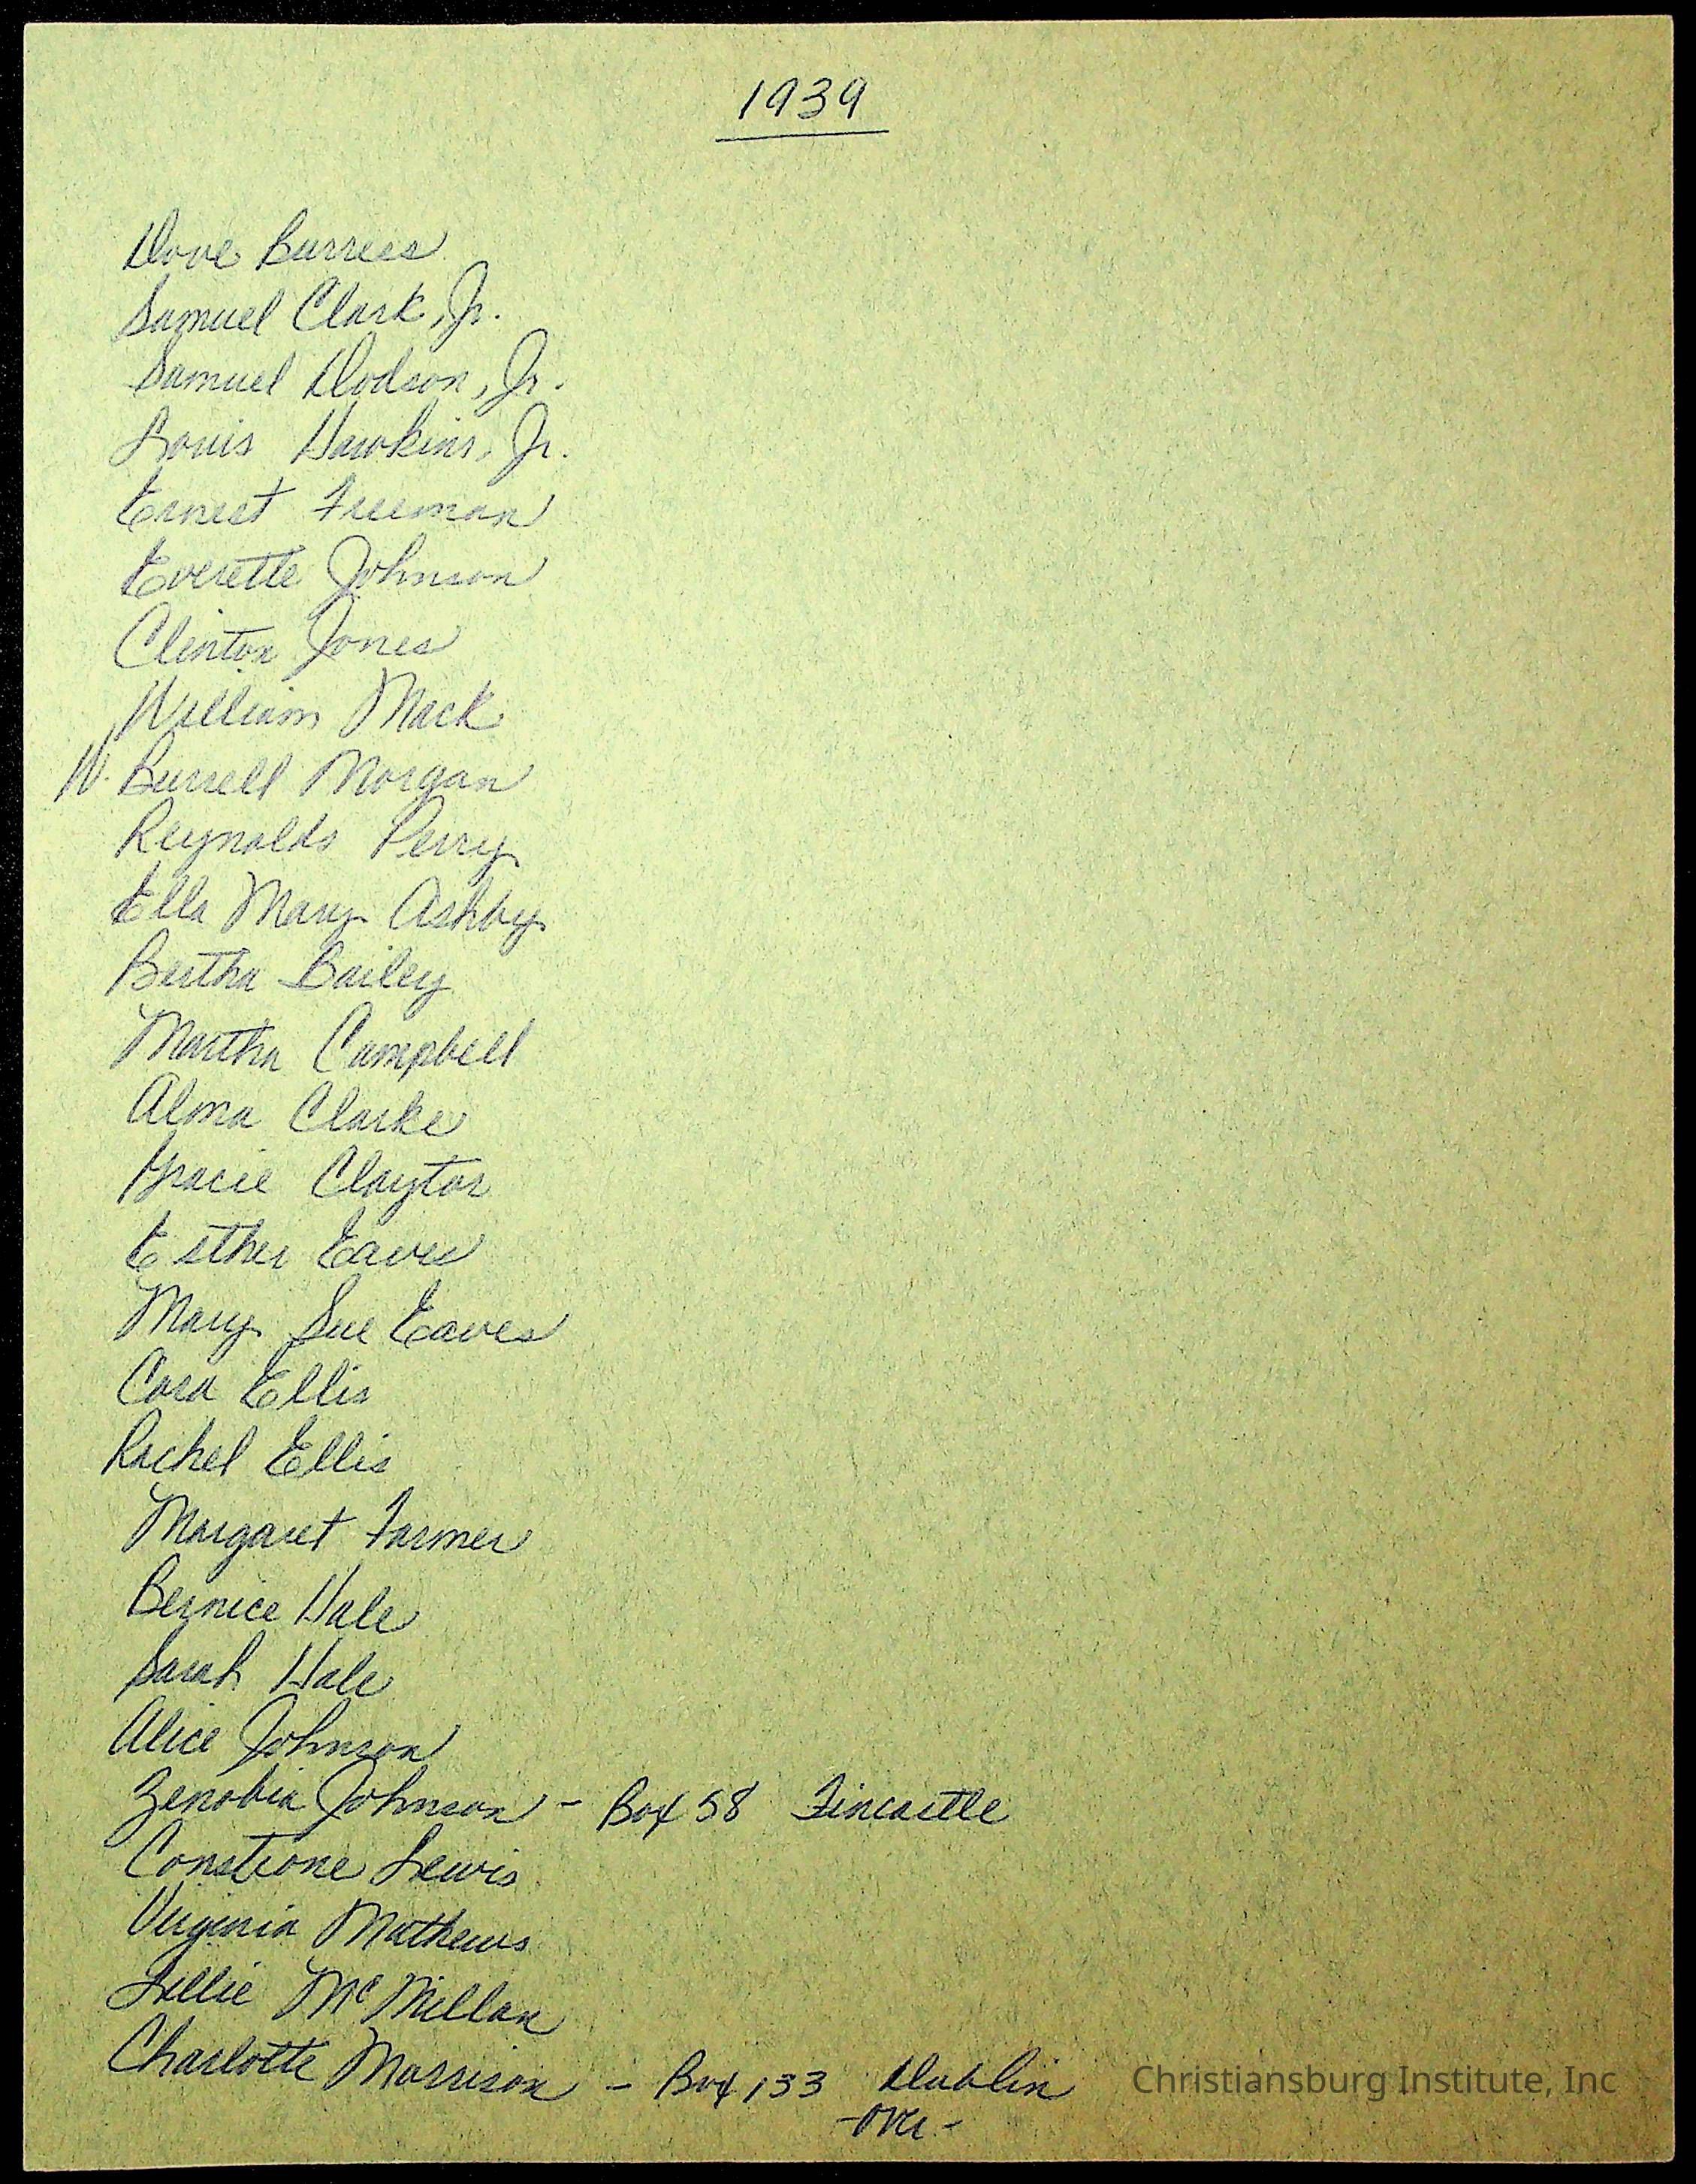 1939
Dove Burress
Samuel Clark, Jr.
Samuel Dodson, Jr.
Louis Hawkins, Jr.
Ernest Freeman
Everette Johnson
Clinton Jones
William Mack
W. Burrell Morgan
Reynolds Perry
Ella Mary Ashby
Bertha Bailey
Martha Campbell
Alma Clarke
Gracie Claytor
Esther Eaves
Mary Sue Eaves
Cora Ellis
Rachel Ellis
Margaret Farmer
Bernice Hale
Sarah Hale
Alice Johnson
Zenobia Johnson - Box 58 Fincastle
Constione Lewis
Virginia Mathews
Lillie McMillan
Charlotte Morrison - Box 133 Dublin
-over-
Christiansburg Institute, Inc